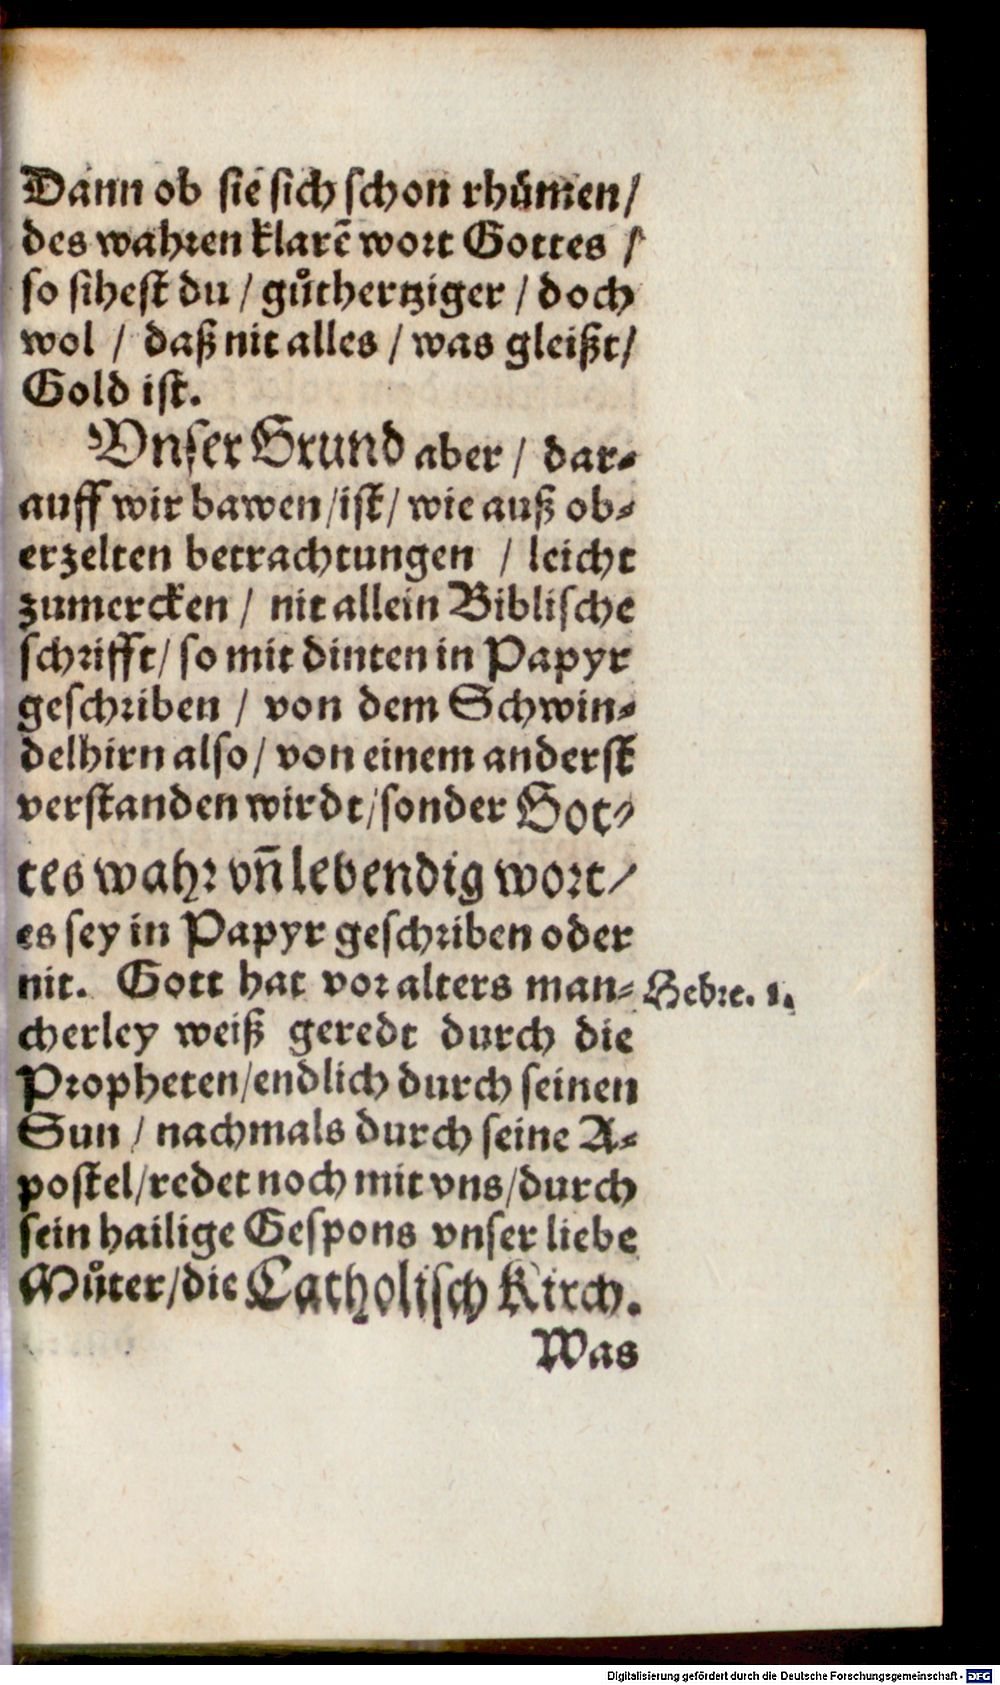 Dann ob sie sich schon rhuͤmen/
des wahren klarē wort Gottes /
so sihest du / guͦthertziger / doch
wol / daß nit alles / was gleißt/
Gold ist.
Vnser Grund aber / dar-
auff wir bawen/ist/ wie auß ob-
erzelten betrachtungen / leicht
zumercken / nit allein Biblische
schrifft/ so mit dinten in Papyr
geschriben / von dem Schwin-
delhirn also/ von einem anderst
verstanden wirdt/sonder Got-
tes wahr vn̄ lebendig wort/
es sey in Papyr geschriben oder
nit. Gott hat vor alters man-
Hebre. 1.
cherley weiß geredt durch die
Propheten/endlich durch seinen
Sun / nachmals durch seine A-
postel/redet noch mit vns/durch
sein hailige Gespons vnser liebe
Muͦter/die Catholisch Kirch.
Was
Digitalisierung gefördert durch die Deutsche Forschungsgemeinschaft - DFG